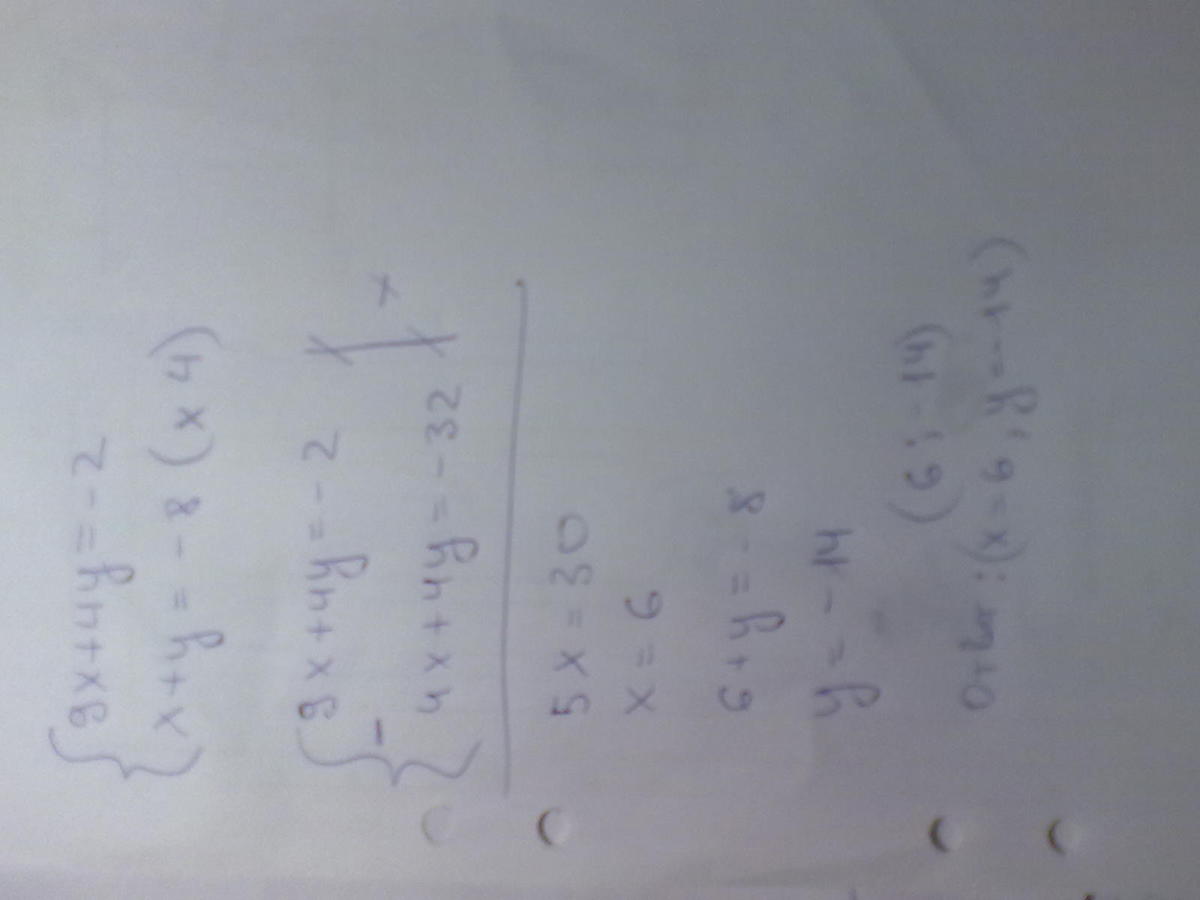 9x+4y=-2
x+y=-8 (x 4)
9x+4y=-2
-
4x+4y=-32
5x=30
x=6
6+y=-8
y=-14
(6;-14)
Ответ:(x=6; y=-14)